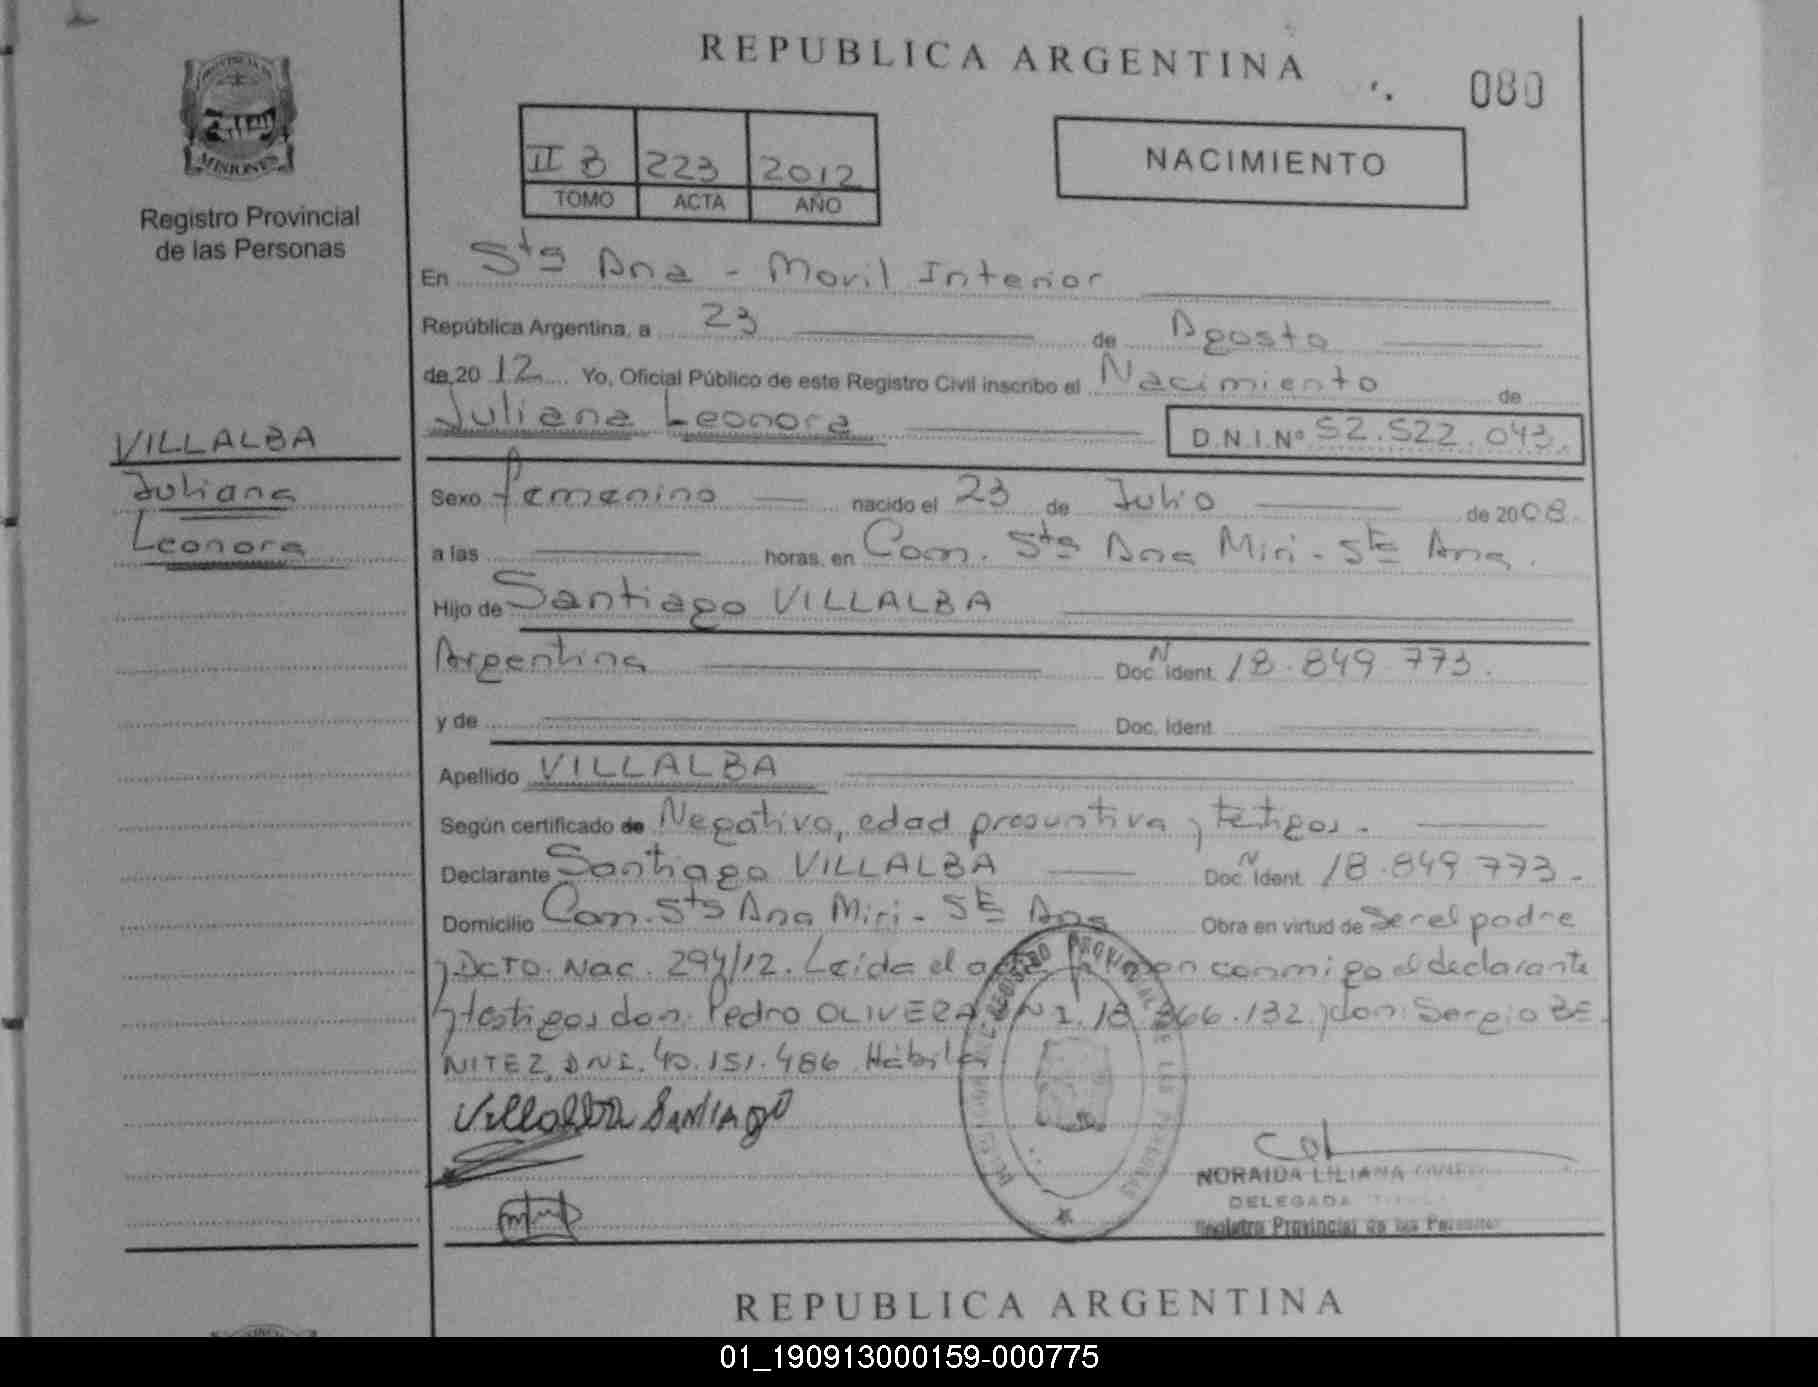 REPUBLICA ARGENTINA
080
PROVINCIA DE
MISIONES
Registro Provincial
de las Personas
II B 223 2012
TOMO ACTA AÑO
NACIMIENTO
En Sta Ana - Movil Interior
República Argentina, a 23 de Agosto
de 20 12 Yo, Oficial Público de este Registro Civil inscribo el Nacimiento de
Juliana Leonora
D.N.I.Nº 52.522.043.
VILLALBA
Juliana
Leonora
Sexo femenino nacido el 23 de Julio de 2008.
a las horas, en Com. Sta Ana Miri - Sta Ana.
Hijo de Santiago VILLALBA
Argentina Doc. N Ident. 18.849.773.
y de Doc. Ident.
Apellido VILLALBA
Según certificado de Negativo, edad presuntiva y testigos.
Declarante Santiago VILLALBA Doc. N Ident. 18.849.773.-
Domicilio Com. Sta Ana Miri - Sta Ana Obra en virtud de Ser el padre
y Dcto. Nac. 294/12. Leida el acta firman conmigo el declarante
y testigos don: Pedro OLIVERA DNI. 18.366.132. y don: Sergio BE
NITEZ, DNI. 40.151.486. Hábiles
Villalba Santiago
NORAIDA LILIANA
DELEGADA
Registro Provincial de las Personas
REPUBLICA ARGENTINA
01_190913000159-000775